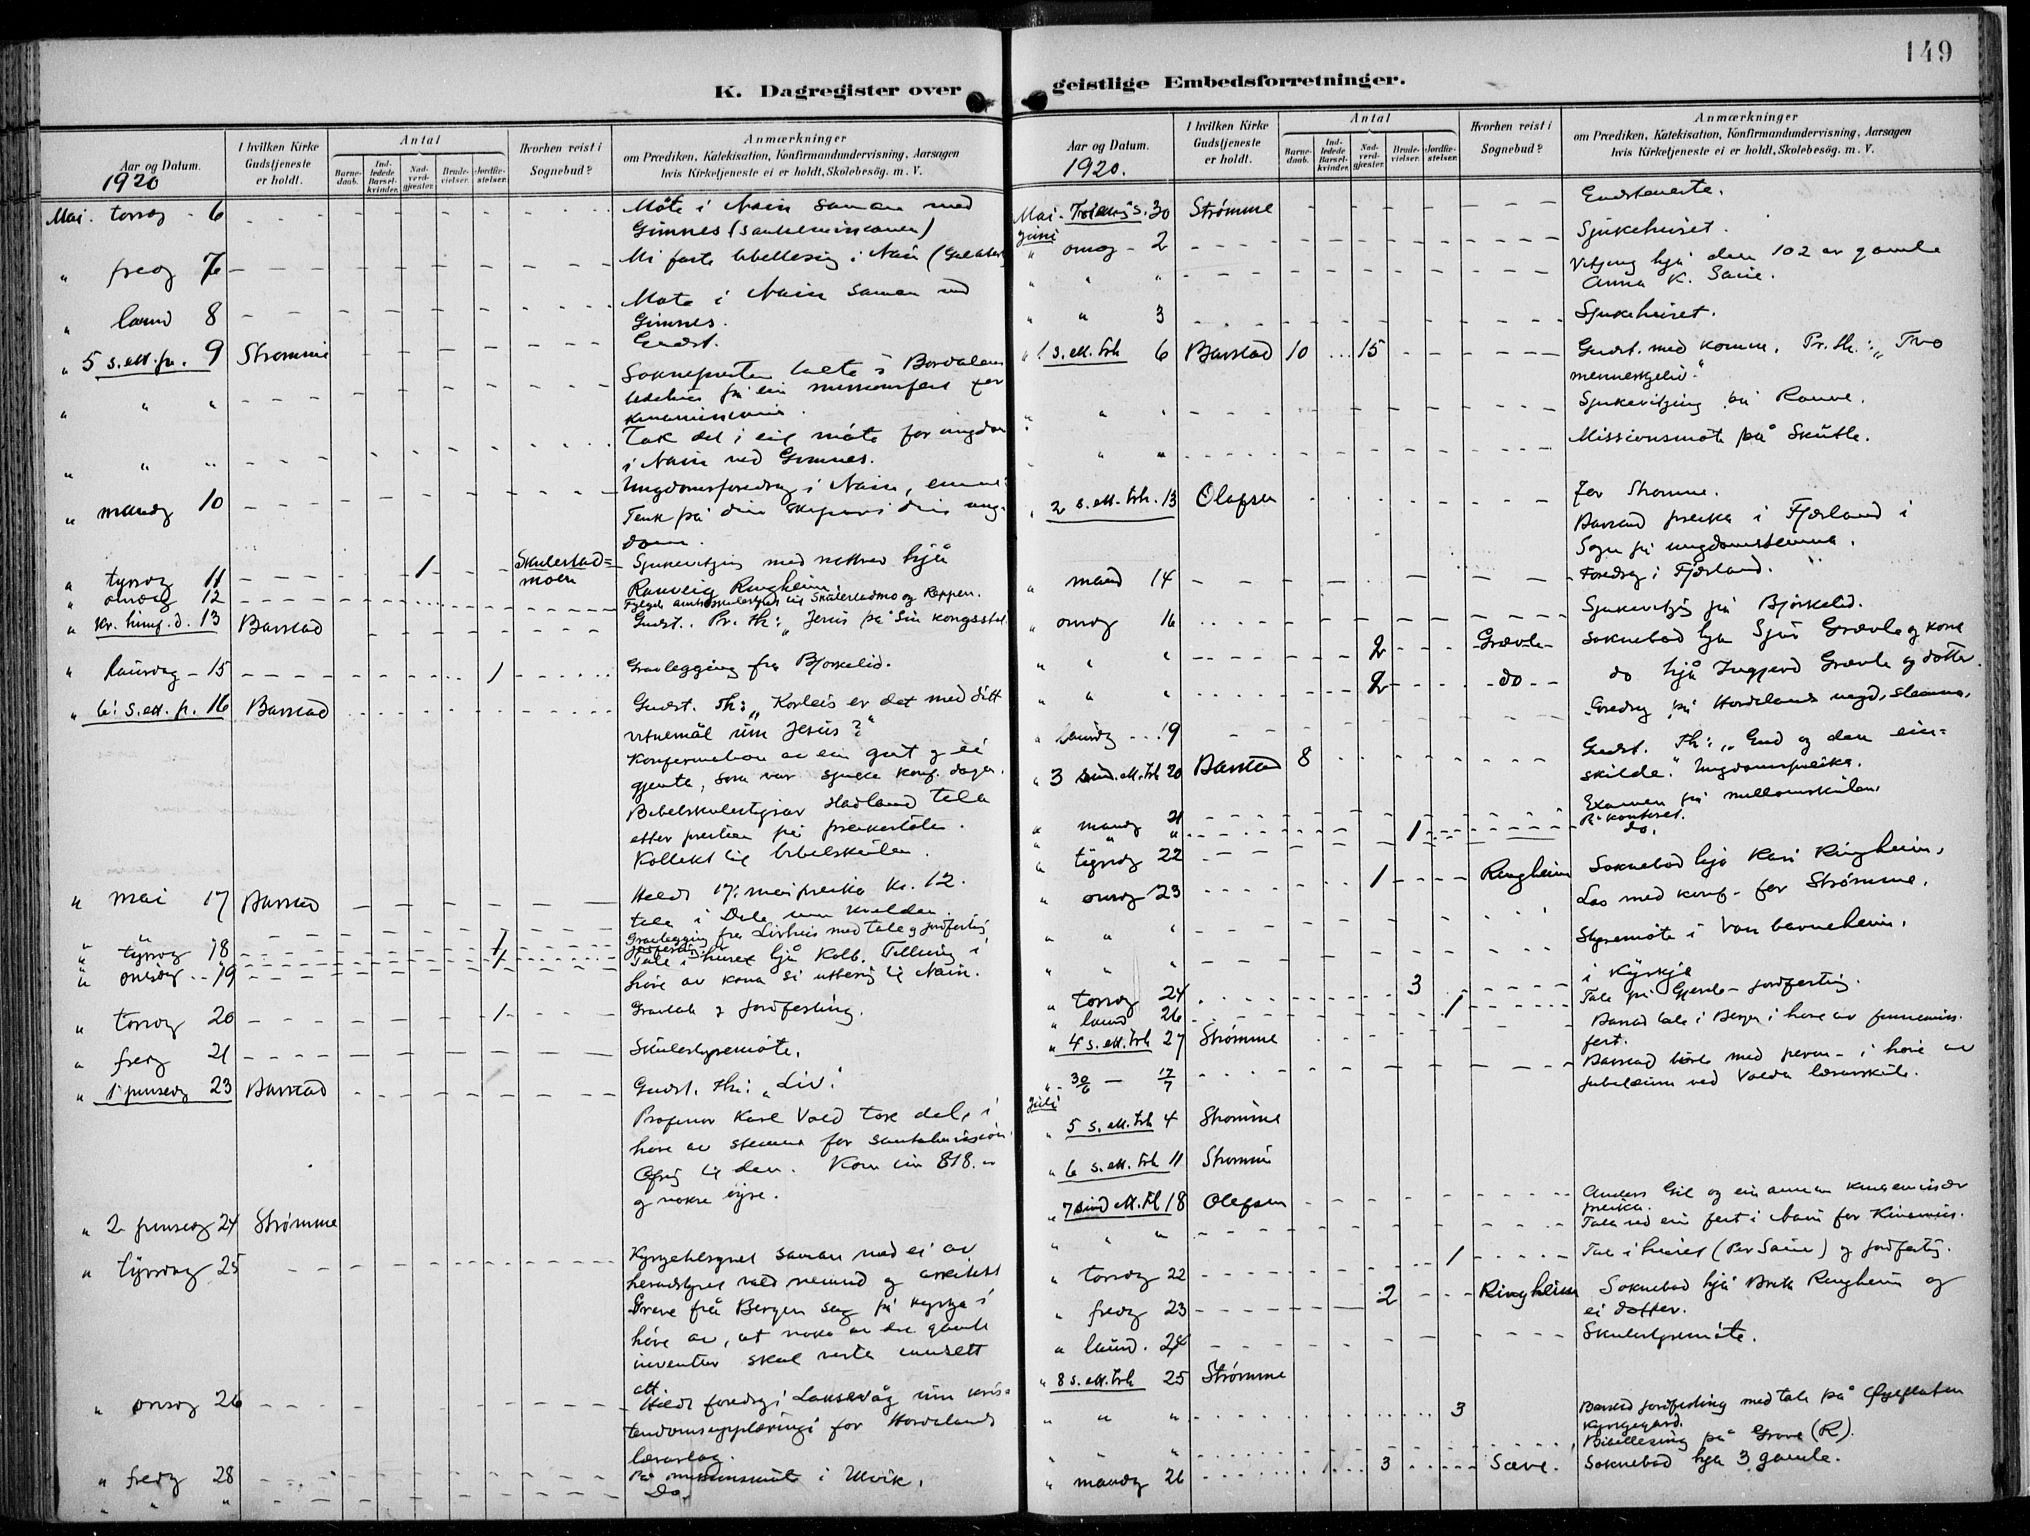 149
K. Dagregister over geistlige Embedsforretninger.
Aar og Datum.
1920
I hvilken Kirke Gudstjeneste er holdt.
Antal
Barnedaab.
Indledede Barselkvinder.
Nadverdgjester.
Brudevielser.
Jordfæstelser.
Hvorhen reist i Sognebud?
Anmærkninger
om Prædiken, Katekisation, Konfirmandundervisning, Aarsagen
hvis Kirketjeneste ei er holdt, Skolebesøg. m. V.
Mai. torsdg - 6 Møte i Nain saman med
Gimnes (santalmisjonen)
" fredg 7 Mi faste bibellesing i Nain
" laurd 8 Møte i Nain saman med
Gimnes.
" 5 s. ett. p. 9 Strømme Gudst.
" " " Soknepresten talte i Bordalen
" " " Tok del i eit møte for ungdom
i Nain ved Gimnes.
" mandg 10 Ungdomsforedrag i Nain, emne:
Tenk på din skapar i din ung-
dom.
" tysdg 11 1 Skulestad=
moen Sjukevitjing med nattverd hjå
Rannveig Ringheim.
" onsdg 12
" Kr. himf. d. 13 Barstad Gudst. Pr. th: "Jesus på sin kongsstol
" laurdag - 15 1 Gravlegging fra Bjørkelid.
" 6: s. ett. p. 16 Barstad Gudst. Th: "Korleis er det med ditt
vitnemål um Jesus?"
Konfirmation av ein gut og ei
gjente, som var sjuke konf. dagen.
Bibelskulestyrar Hadland tala
etter preika på preikestolen.
Kollekt til bibelskulen.
" mai 17 Barstad Heldt 17: mai preika kl. 12.
tala i Dale um kvelden.
" " " 1 Gravlegging fra Lirhus med tale og jordfesting
" tysdg 18 1 Tale i huset hjå Kolb. Tillung i
" onsdg 19 høve av kona si utferd til Nain.
" torsdg 20 1 Gravtale og jordfesting.
" fredg 21 Skulestyremøte.
" 1 pinsedg 23 Barstad Gudst. Th: "Liv."
Professor Karl Vold tok del i
høve av stemna for santalmisjon.
Ofring til den. Kom inn 818.-
og nokre øyre.
" 2 pinsedg 24 Strømme
" tysdag 25 Kyrkjetilsynet saman med ei av
heradstyret vald nemnd og arkitekt
Greve frå Bergen såg på kyrkja i
høve av, at noko av det gamle
inventar skal verta innsett
att.
" onsdg 26 Heldt foredrag i Laksevåg um kris=
tendomsupplæringi for Hordaland
lærarlag.
" fredg 28 På misjonsmøte i Ulvik.
" " " Do.
Aar og Datum.
1920.
I hvilken Kirke Gudstjeneste er holdt.
Antal
Barnedaab.
Indledede Barselkvinder.
Nadverdgjester.
Brudevielser.
Jordfæstelser.
Hvorhen reist i Sognebud?
Anmærkninger
om Prædiken, Katekisation, Konfirmandundervisning, Aarsagen
hvis Kirketjeneste ei er holdt, Skolebesøg. m. V.
Mai - 30 Strømme Gudsteneste.
Juni
" onsdg - 2 Sjukehuset.
" " " Vitjing hjå den 102 år gamle
Anna K. Saue.
" " 3 Sjukehuset.
" 1 s. ett. trh 6 Barstad 10 15 Gudst. med komm. Pr. th.: "Two
menneskjeliv."
" " " Sjukevitjing på Ronve.
" " " Missionsmøte på Skutle.
" 2 s. ett. trh. 13 Olafsen For Strømme.
Barstad preika i Fjærland i
Sogn på ungdomsstemna.
" mand 14 Foredrag i Fjærland.
" onsdg 16 Sjukevitjing på Bjørkelid.
" " " 2 Grævle Soknebod hjå Sjur Grævle og kone
" " " 2 do do hjå Ingjerd Grævle og dotter.
" laurdg 19 Foredrag på Hordaland ungd. stemna.
" 3 sund. ett. trh 20 Barstad 8 Gudst. Th: "Gud og den ein=
skilde." Ungdomspreika.
" mandg 21 Examen på millomskulen.
" " " 1 På kontoret.
" tysdg 22 do.
" onsdg 23 1 Ringheim Soknebod hjå Kari Ringheim.
" " " Las med konf. for Strømme.
" " " Styremøte i Voss barneheim.
" torsdg 24 3 i Kyrkja
" laurd 26 1 Tale på Gjerde - Jordfesting.
" 4 s. ett. trh 27 Strømme Barstad tale i Bergen i høve av finnemis.
fest.
" 30/6 — 17/7 Barstad med perm. i høve av
jubileum ved Volda lærarskule.
Juli
" 5 s. ett. trh 4 Strømme
" 6 s. ett. trh 11 Strømme
" 7 sund ett. trh 18 Olafsen Anders Gil og ein annan kinamisjonær
preika.
" " " Tala ved ein fest i Nain for Kinamis.
" torsdg 22 1 Tale i huset (Per Saue) og jordfesting.
" fredg 23 2 Ringheim Soknebod hjå Brita Ringheim og
ei dotter.
" laurd. 24 Skulestyremøte.
" 8 s. ett. trh 25 Strømme
" " " 3 Barstad jordfesting med tale på Øyeflaten
Kyrkjegard.
" " Bibellesing på Grove (R).
" mandg 26 3 Sæve. Soknebod hjå 3 gamle.